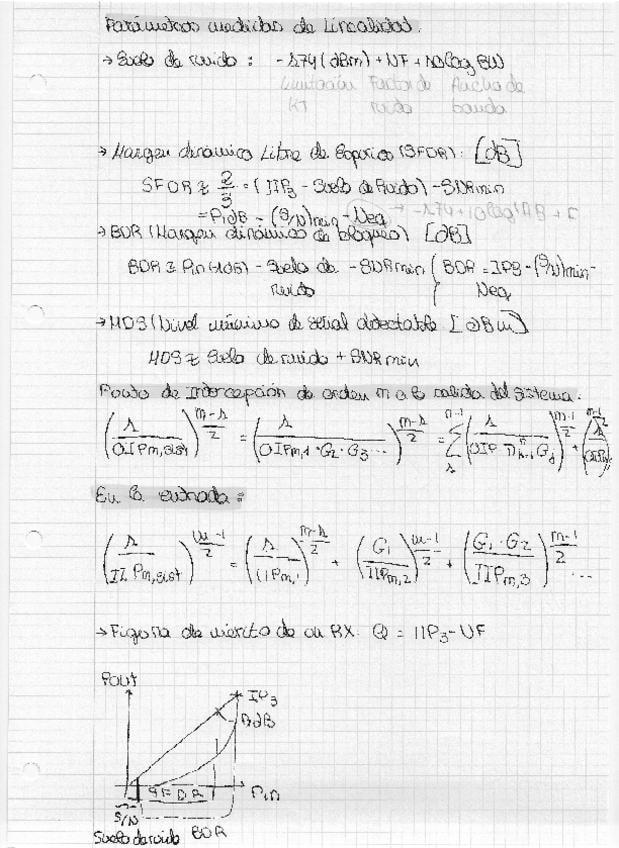 Parámetros medidas de Linealidad.
→ Suelo de ruido : -174 (dBm) + NF + 10log BW
Limitación Factor de Ancho de
KT ruido banda
→ Margen dinámico Libre de Espurios (SFDR): [dB]
SFDR ≈ 2/3 = (IIP3 - Suelo de Ruido) - SNRmin
= P1dB - (S/N)min - Neq → -174 + 10log(AB +
→ BDR (Margen dinámico de bloqueo) [dB]
BDR ≈ Pin(1dB) - Suelo de - SNRmin { BDR = IP3 - (S/N)min -
ruido Neq
→ MDS (Nivel mínimo de señal detectable [dBm]
MDS ≈ Suelo de ruido + SNRmin
Punto de Intercepción de orden m a la salida del sistema.
(1/OIPm,sist)^(m-1/2) = (1/OIPm,1·G2·G3···)^(m-1/2) = Σ (1/OIP Π G)^(m-1/2) + (1/OIPm)^(m-1/2)
En la entrada:
(1/IIPm,sist)^(m-1/2) = (1/IIPm,1)^(m-1/2) + (G1/IIPm,2)^(m-1/2) + (G1·G2/IIPm,3)^(m-1/2) ...
→ Figura de mérito de un RX. Q = IIP3 - NF
Pout
IP3
P1dB
SFDR Pin
S/N
Suelo de ruido BDR